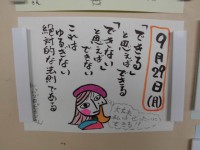 9月29日(月)
「できる」
と思えばできる
「できない」
と思えば
できない
これは
ゆるぎない
絶対的な法則である